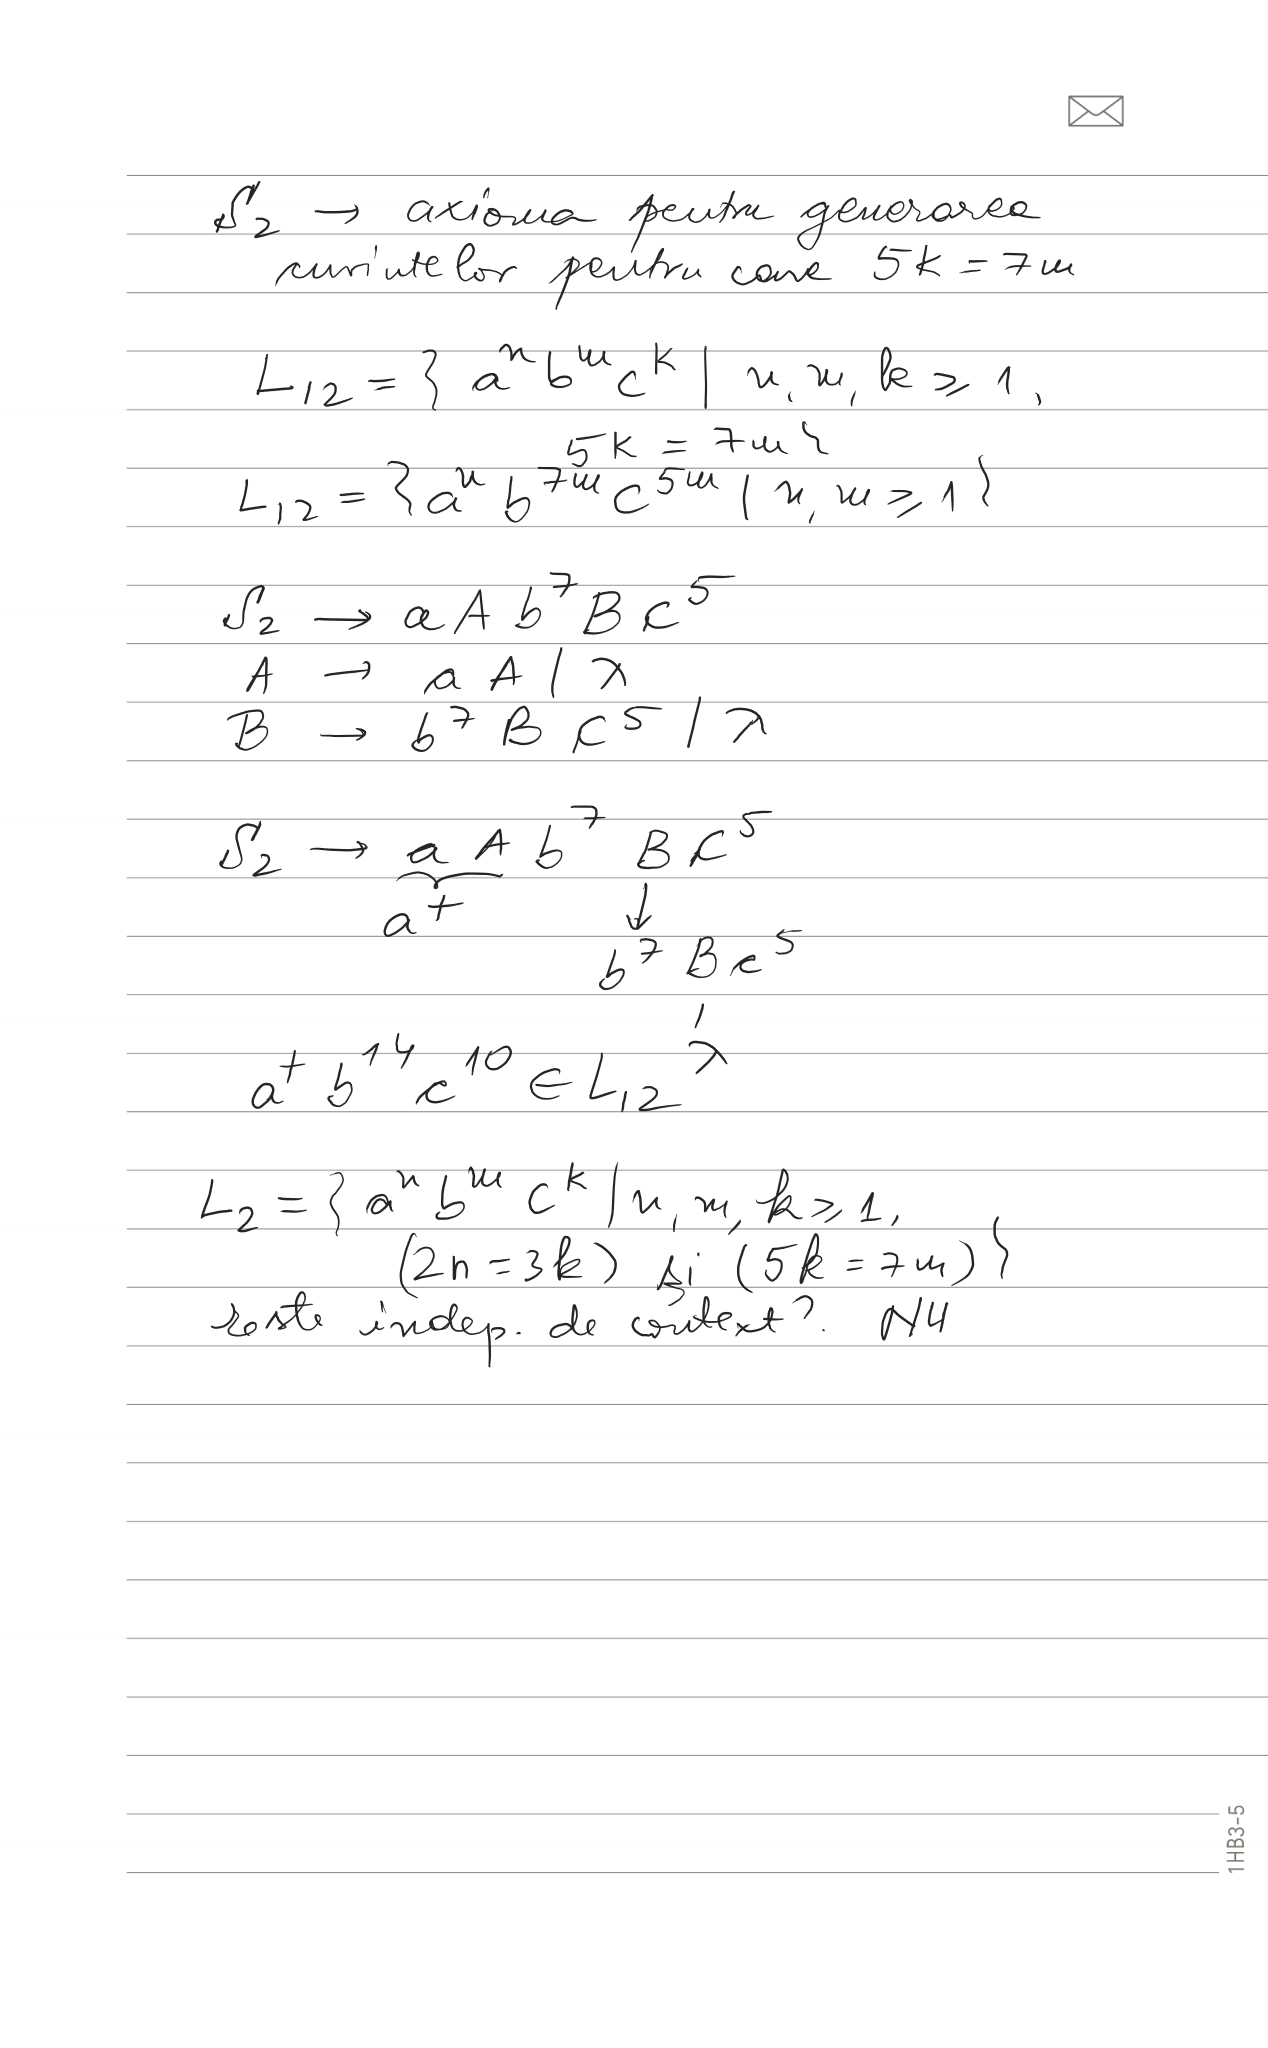 S₂ → axioma pentru generarea
cuvintelor pentru care 5k = 7m
L₁₂ = { aⁿ bᵐ cᵏ | n, m, k ⩾ 1,
5k = 7m }
L₁₂ = { aⁿ b⁷ᵐ c⁵ᵐ | n, m ⩾ 1 }
S₂ → a A b⁷ B c⁵
A → a A | λ
B → b⁷ B c⁵ | λ
S₂ → a A b⁷ B c⁵
a⁺ ↓
b⁷ B c⁵
|
λ
a⁺ b¹⁴ c¹⁰ ∈ L₁₂
L₂ = { aⁿ bᵐ cᵏ | n, m, k ⩾ 1,
(2n = 3k) și (5k = 7m) }
este indep. de context? NU
1HB3-5